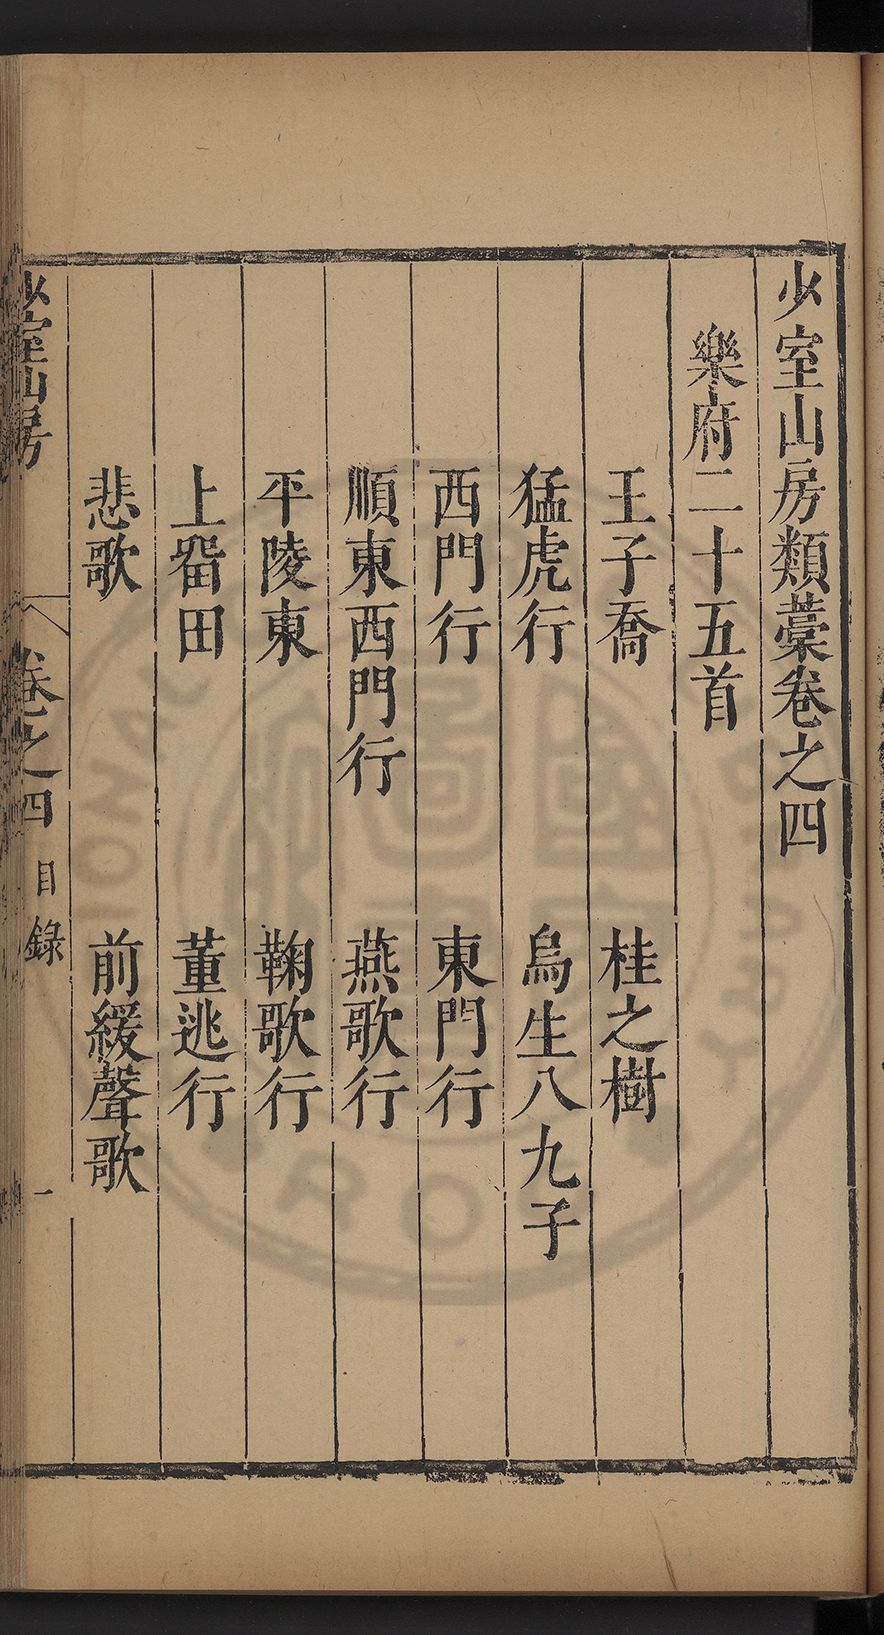 少室山房類藁卷之四
樂府二十五首
王子喬　桂之樹
猛虎行　烏生八九子
西門行　東門行
順東西門行　燕歌行
平陵東　鞠歌行
上畱田　董逃行
悲歌　前緩聲歌
少室山房　卷之四　目錄　一